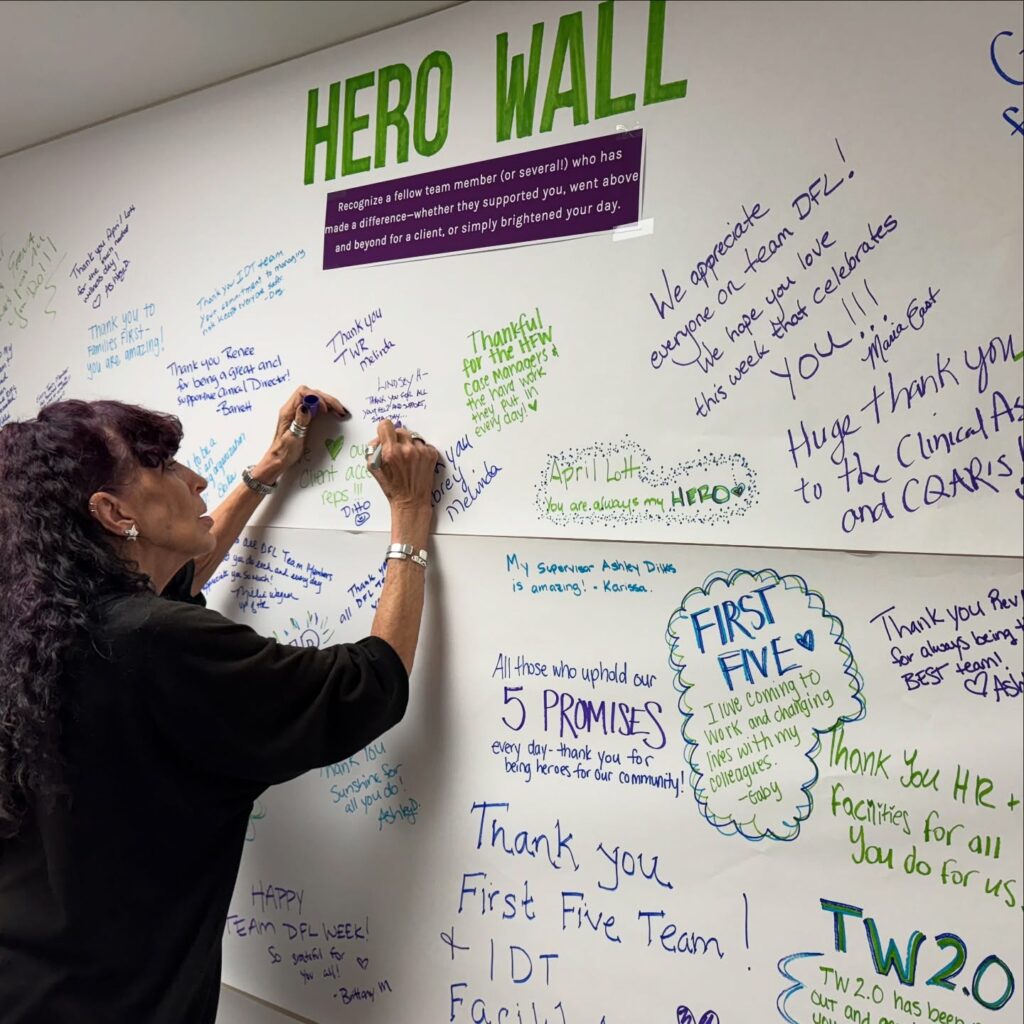 HERO WALL
Recognize a fellow team member (or several!) who has
made a difference—whether they supported you, went above
and beyond for a client, or simply brightened your day.
Thank you April Lott
for the much needed
wellness day!
♡ Ashley D.
Thank you to
Families First-
you are amazing!
Thank you IDT team
your commitment to managing
keeps everyone safe
Thank you Renee
for being a great and
supportive Clinical Director!
- Barrett
Thank you
TWR
melinda
LINDSEY H-
THANK YOU FOR ALL
YOUR HELP AND SUPPORT,
Thankful
for the HFW
Case Managers &
the hard work
they put in
every day! ♥
We appreciate
everyone on team DFL!
We hope you love
this week that celebrates
YOU!!!
Maria East
Huge thank you
to the Clinical As
and CQAR's
to be a
organization
♥ our
client acc
reps!!!
Ditto
you
Melinda
April Lott
You are always my HERO ♥
DFL Team Members
you do each and every day
appreciate you so much!
Thank you
all
My Supervisor Ashley Dilks
is amazing! - Karissa
All those who uphold our
5 PROMISES
every day- thank you for
being heroes for our community!
FIRST
FIVE ♥
I love coming to
work and changing
lives with my
colleagues.
- Gaby
Thank you Rev
for always being th
BEST team!
♡ Ash
Thank You
Sunshine for
all you do!
Ashley D.
Thank You HR +
Facilities for all
You do for us
HAPPY
TEAM DFL WEEK!
So grateful for
you all! ♡
- Brittany M
Thank you
First Five Team!
+ IDT
Facil
TW 2.0
TW 2.0 has been
out and